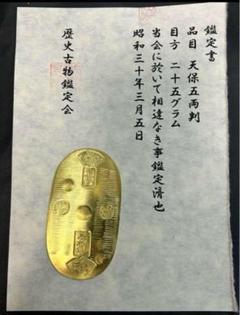 鑑定書
品目 天保五両判
目方 二十五グラム
当会に於いて相違なき事鑑定済也
昭和三十年三月五日
歴史古物鑑定会